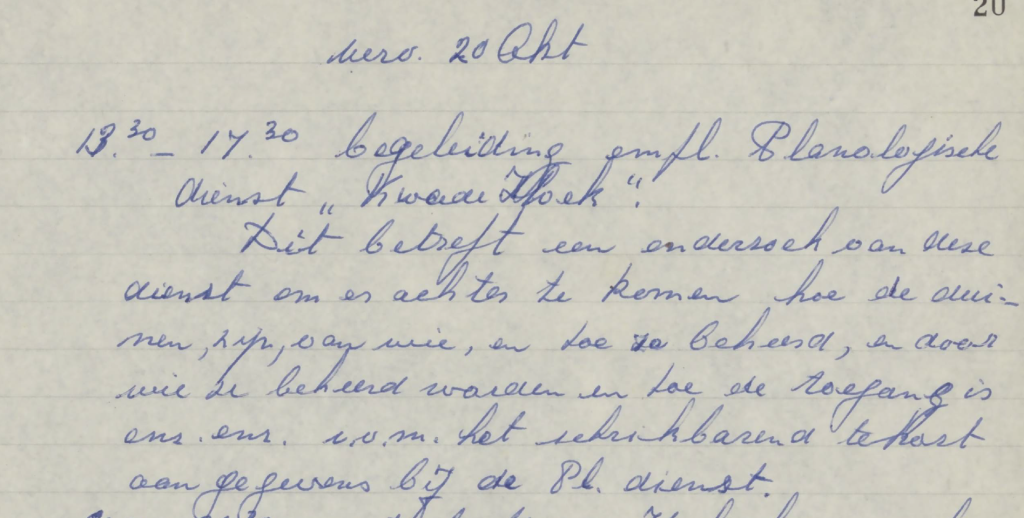 20
20 Okt
13.30 - 17.30 begeleiding empl. Planologische
dienst "Kwade Hoek".
Dit betreft een onderzoek van deze
dienst om er achter te komen hoe de dui-
nen, zijn, van wie, en hoe ze beheerd, en door
wie ze beheerd worden en hoe de toegang is
enz. enz. i.v.m. het schrikbarend tekort
aan gegevens bij de Pl. dienst.